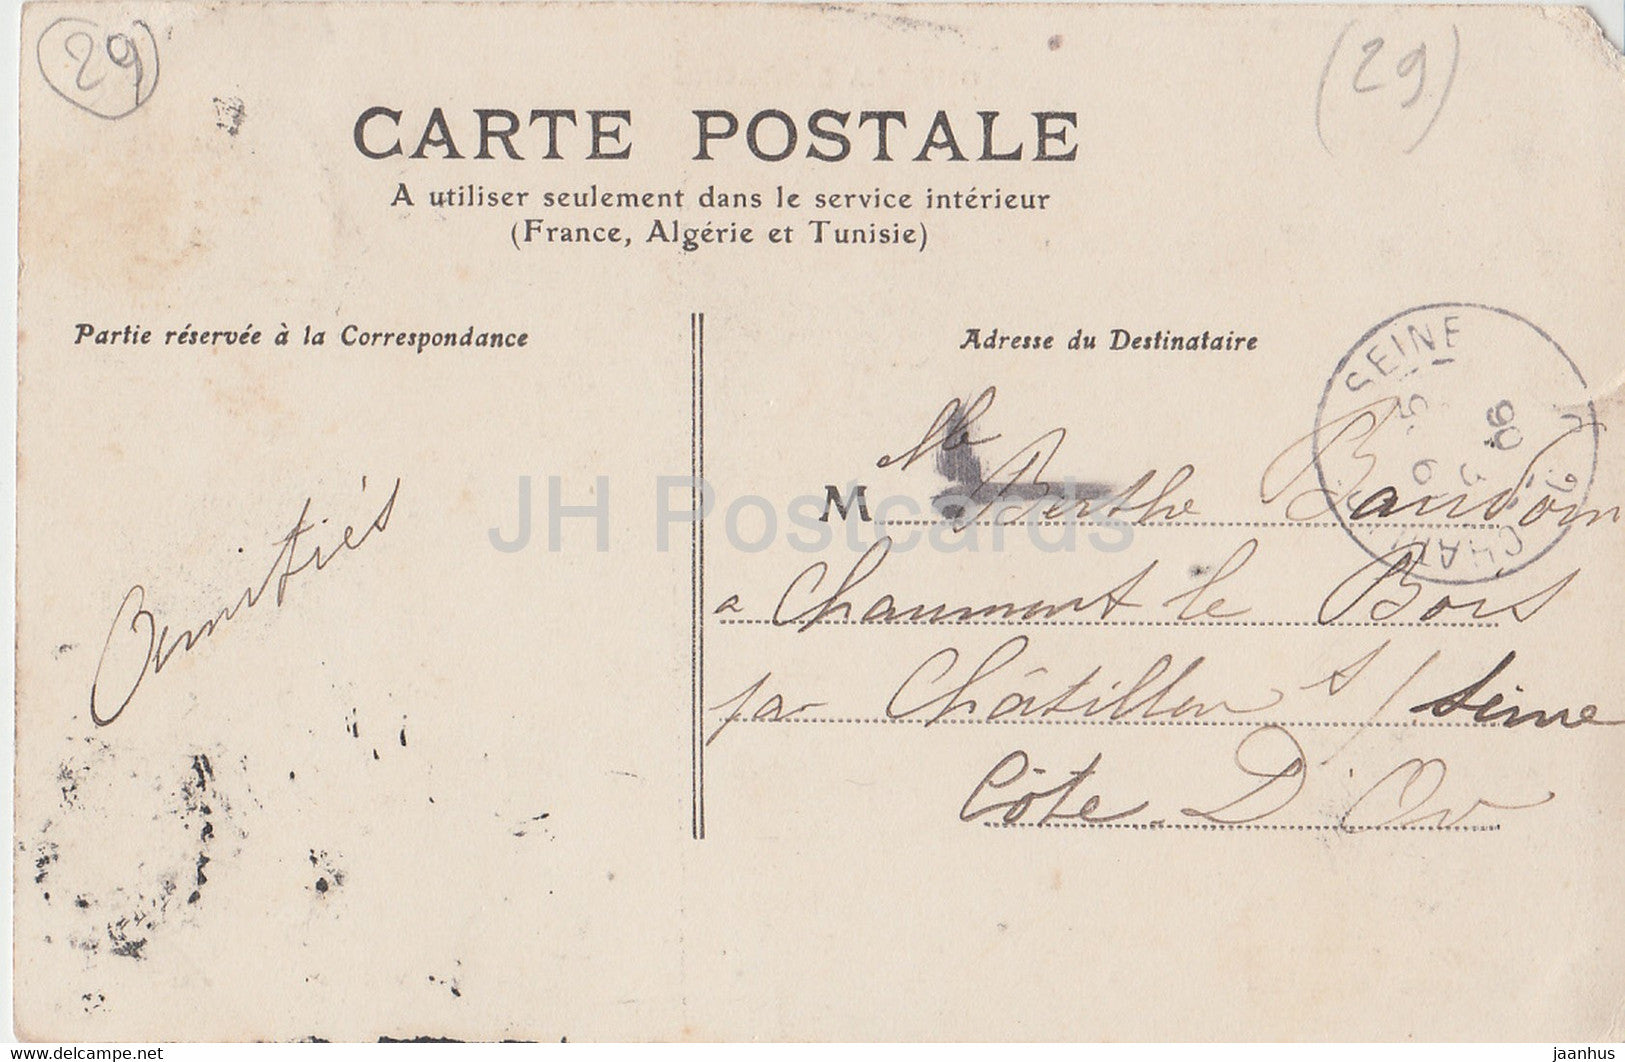 29
(29)
CARTE POSTALE
A utiliser seulement dans le service intérieur
(France, Algérie et Tunisie)
Partie réservée à la Correspondance
Adresse du Destinataire
SEINE
Amitiés
M Berthe Baudoin
a Chaumont le Bois
par Châtillon s/ Seine
Côte D'Or
JH Postcards
www.delcampe.net
jaanhus